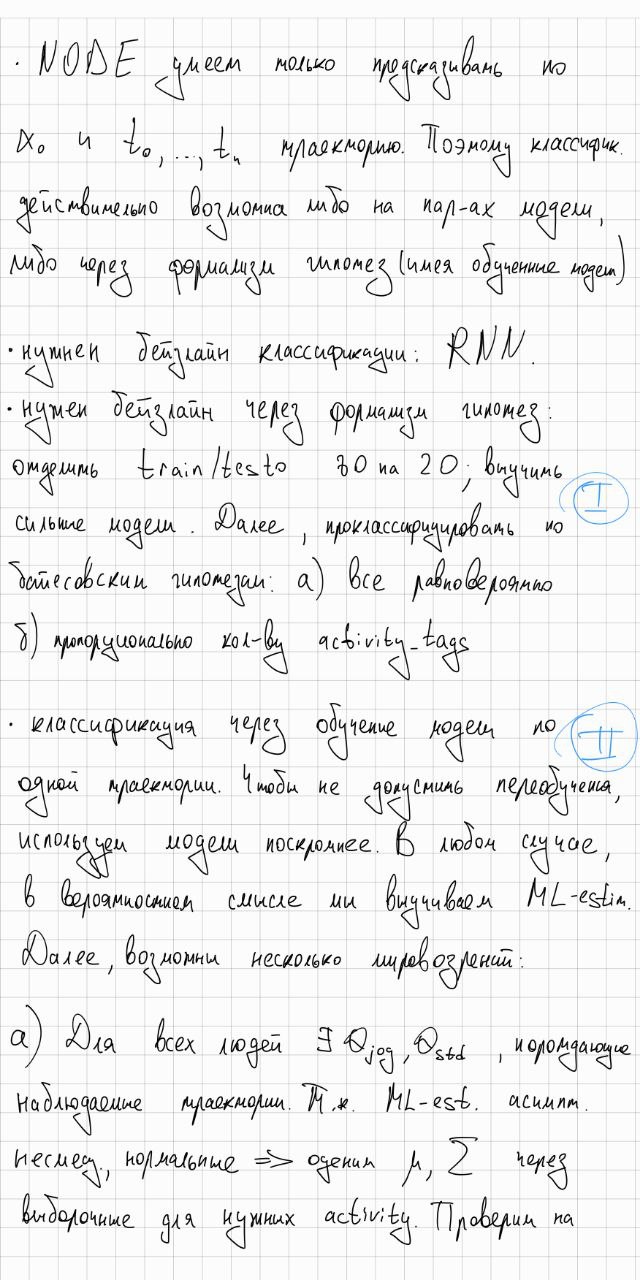 · NODE умеем только предсказывать по
x₀ и t₀, ..., tₙ траекторию. Поэтому классифик.
действительно возможна либо на пар-ах модели,
либо через формализм гипотез (имея обученные модели)
· нужнен бейзлайн классификации: RNN.
· нужен бейзлайн через формализм гипотез:
отделить train/test 80 на 20; выучить
сильные модели. Далее, проклассифицировать по
батесовским гипотезам: а) все равновероятно
б) пропорционально кол-ву activity_tags
I
· классификация через обучение модели по
одной траектории. Чтобы не допустить переобучения,
используем модели поскромнее. В любом случае,
в вероятностном смысле мы выучиваем ML-estim.
Далее, возможны несколько мировозрений:
II
а) Для всех людей ∃ Θjog, Θstd, порождающие
наблюдаемые траектории. Т.к. ML-est. асимпт.
несмещ., нормальные => оценим μ, Σ через
выборочные для нужных activity. Проверим на